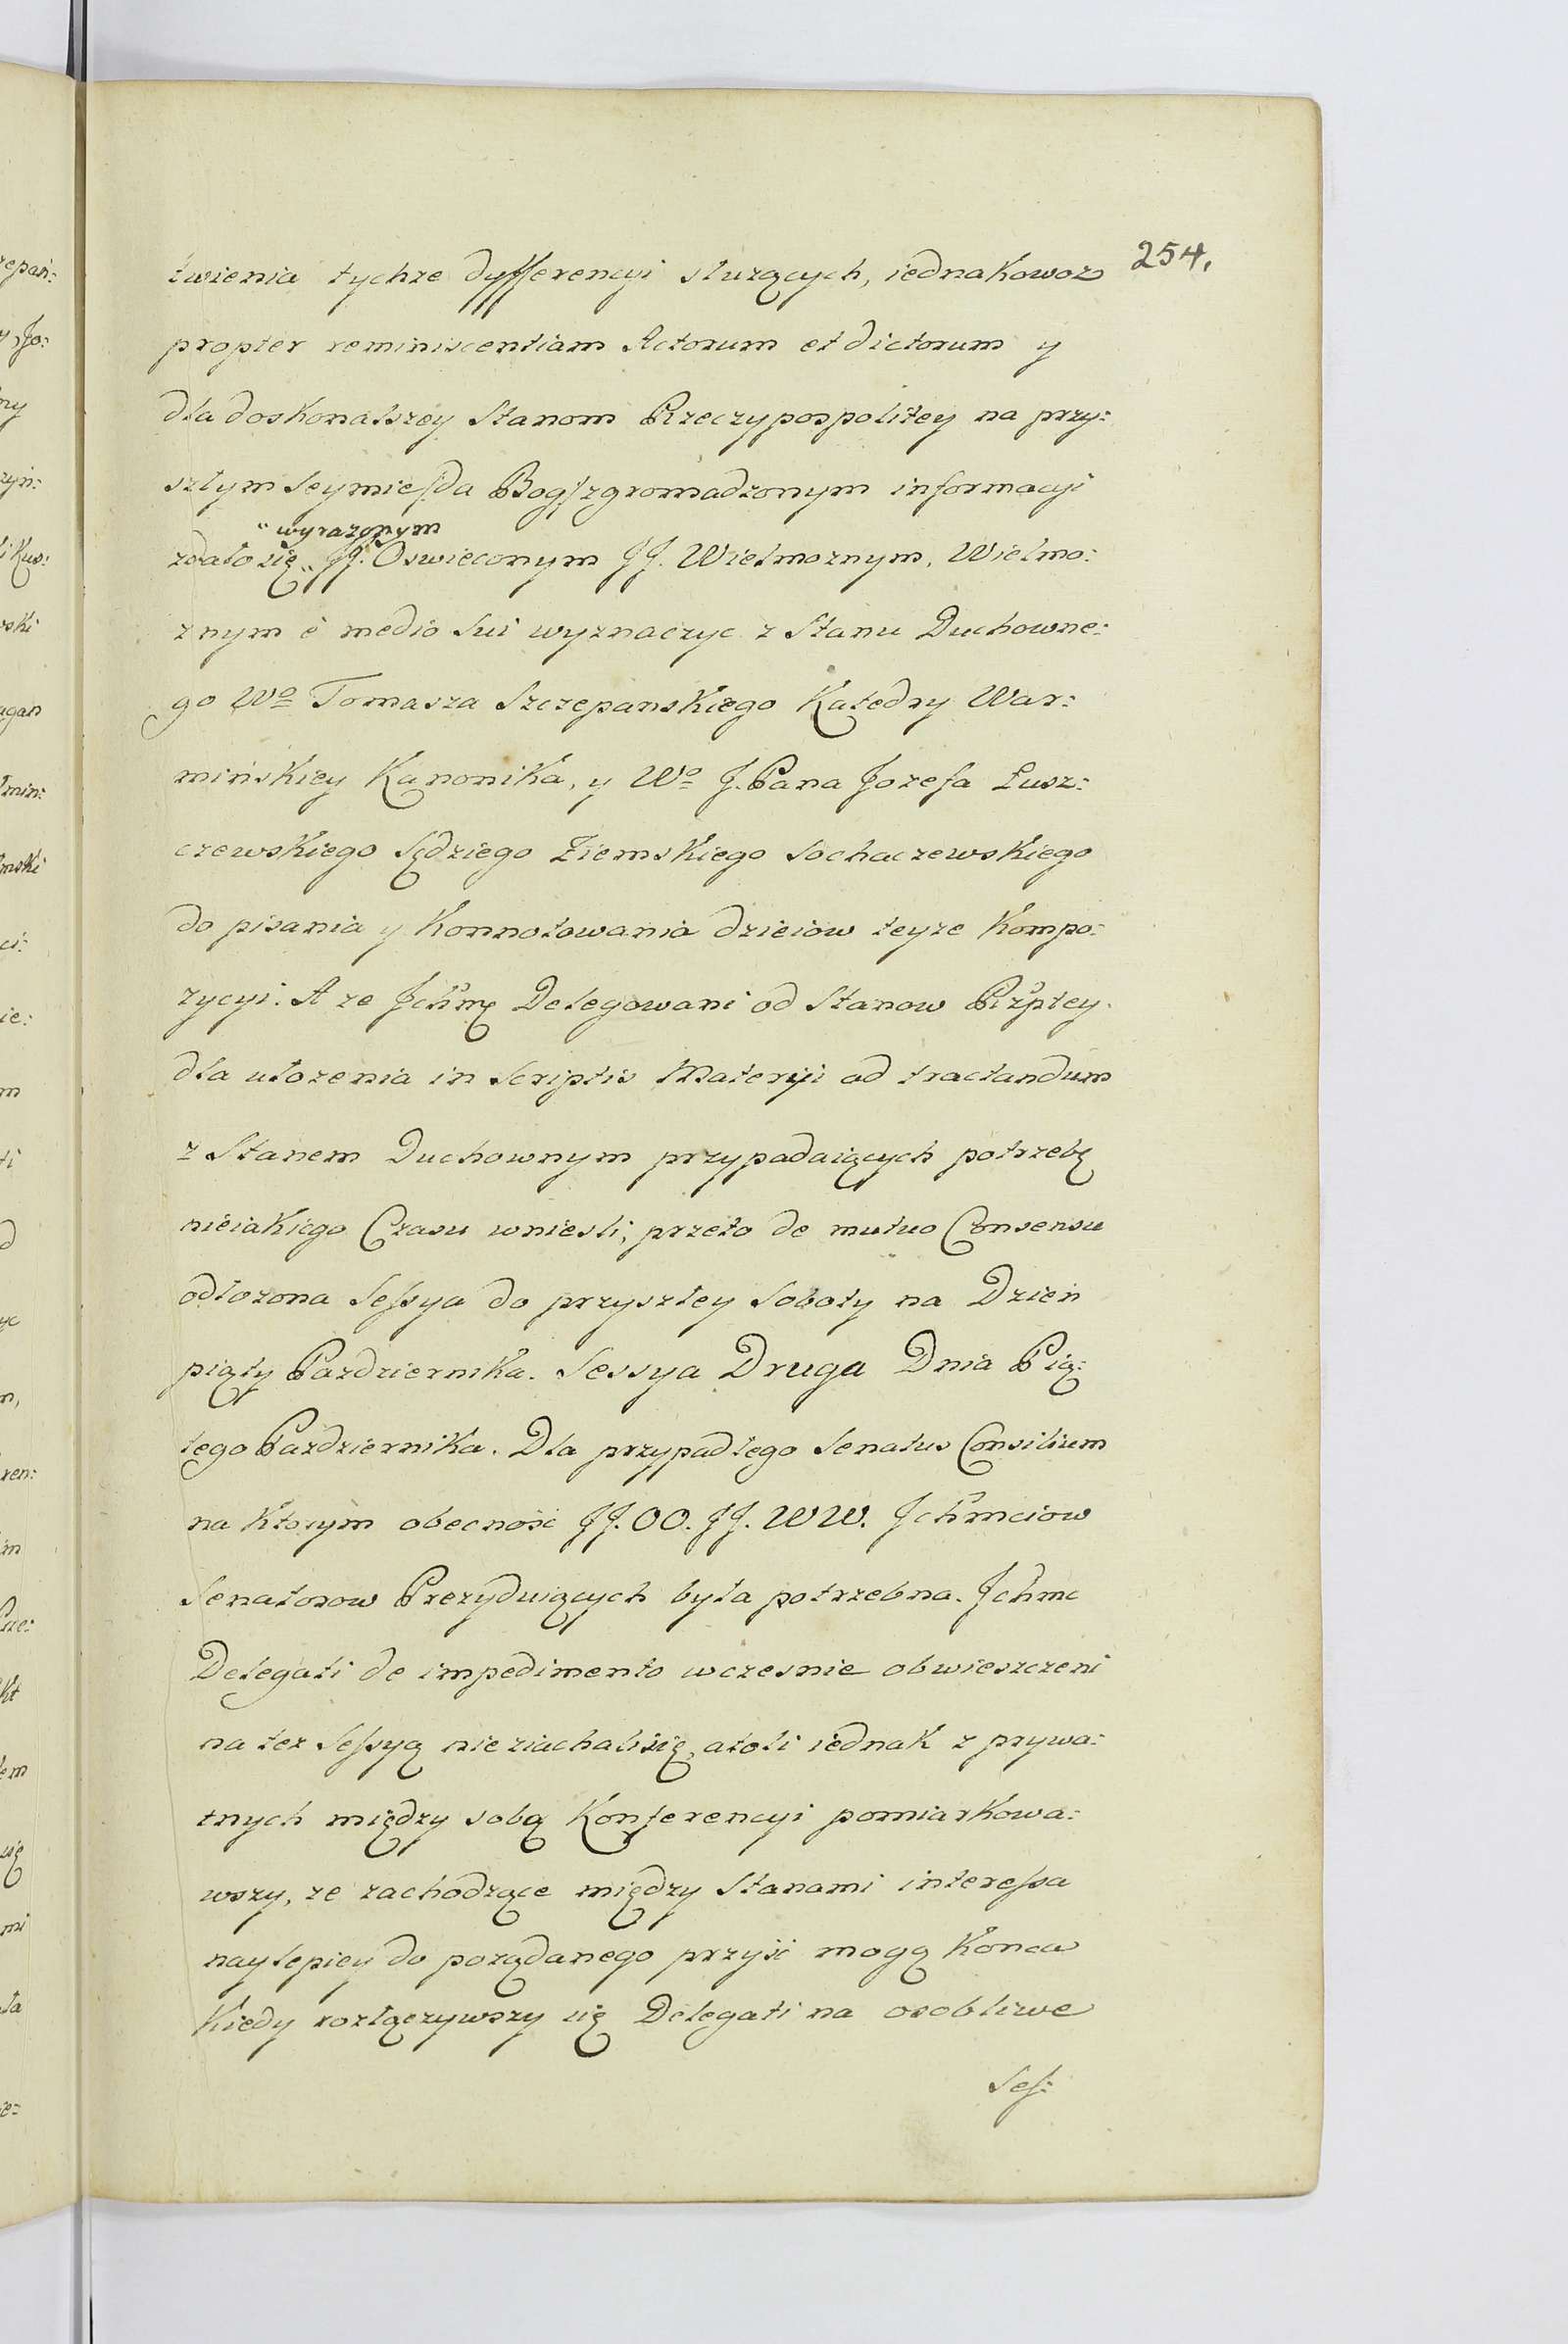 254.
twienia tychze dyfferencyi sluzących, iednakowoz
propter reminiscentiam Actorum et dictorum y
dla doskonalszey Stanom Rzeczypospolitey na przy:
szłym Seymie /da Bog/ zgromadzonym informacyi
" wyrazonym
zdało się „ JJ. Oswieconym JJ. Wielmoznym, Wielmo:
znym è medio Sui wyznaczyc z Stanu Duchowne:
go Wo Tomasza Szczepanskiego Katedry War:
mińskiey Kanonika, y Wo J. Pana Jozefa Łusz:
czewskiego Sędziego Ziemskiego Sochaczewskiego
do pisania y Konnotowania dzieiow teyze Kompo:
zycyi. A ze Jchmę Delegowani od Stanow Rzptey.
dla ułozenia in Scriptis Materyi ad tractandum
z Stanem Duchownym przypadaiących potrzebę
nieiakiego Czasu wniesli, przeto de mutuo Consensu
odłozona Sessya do przyszłey Soboty na Dzien
piąty Pazdziernika. Sessya Druga Dnia Pią:
tego Pazdziernika. Dla przypadłego Senatus Consilium
na ktorym obecność JJ. OO. JJ. WW. Jchmciow
Senatorow Prezyduiących była potrzebna. Jchmc
Delegati de impedimento wczesnie obwieszczeni
na tez Sessyą nieziachali się, atoli iednak z prywa:
tnych między sobą Konferencyi pomiarkowa:
wszy, ze zachodzące między Stanami interessa
naylepiey do poządanego przyść mogą Konca
Kiedy rozłączywszy się Delegati na osobliwe
Ses: